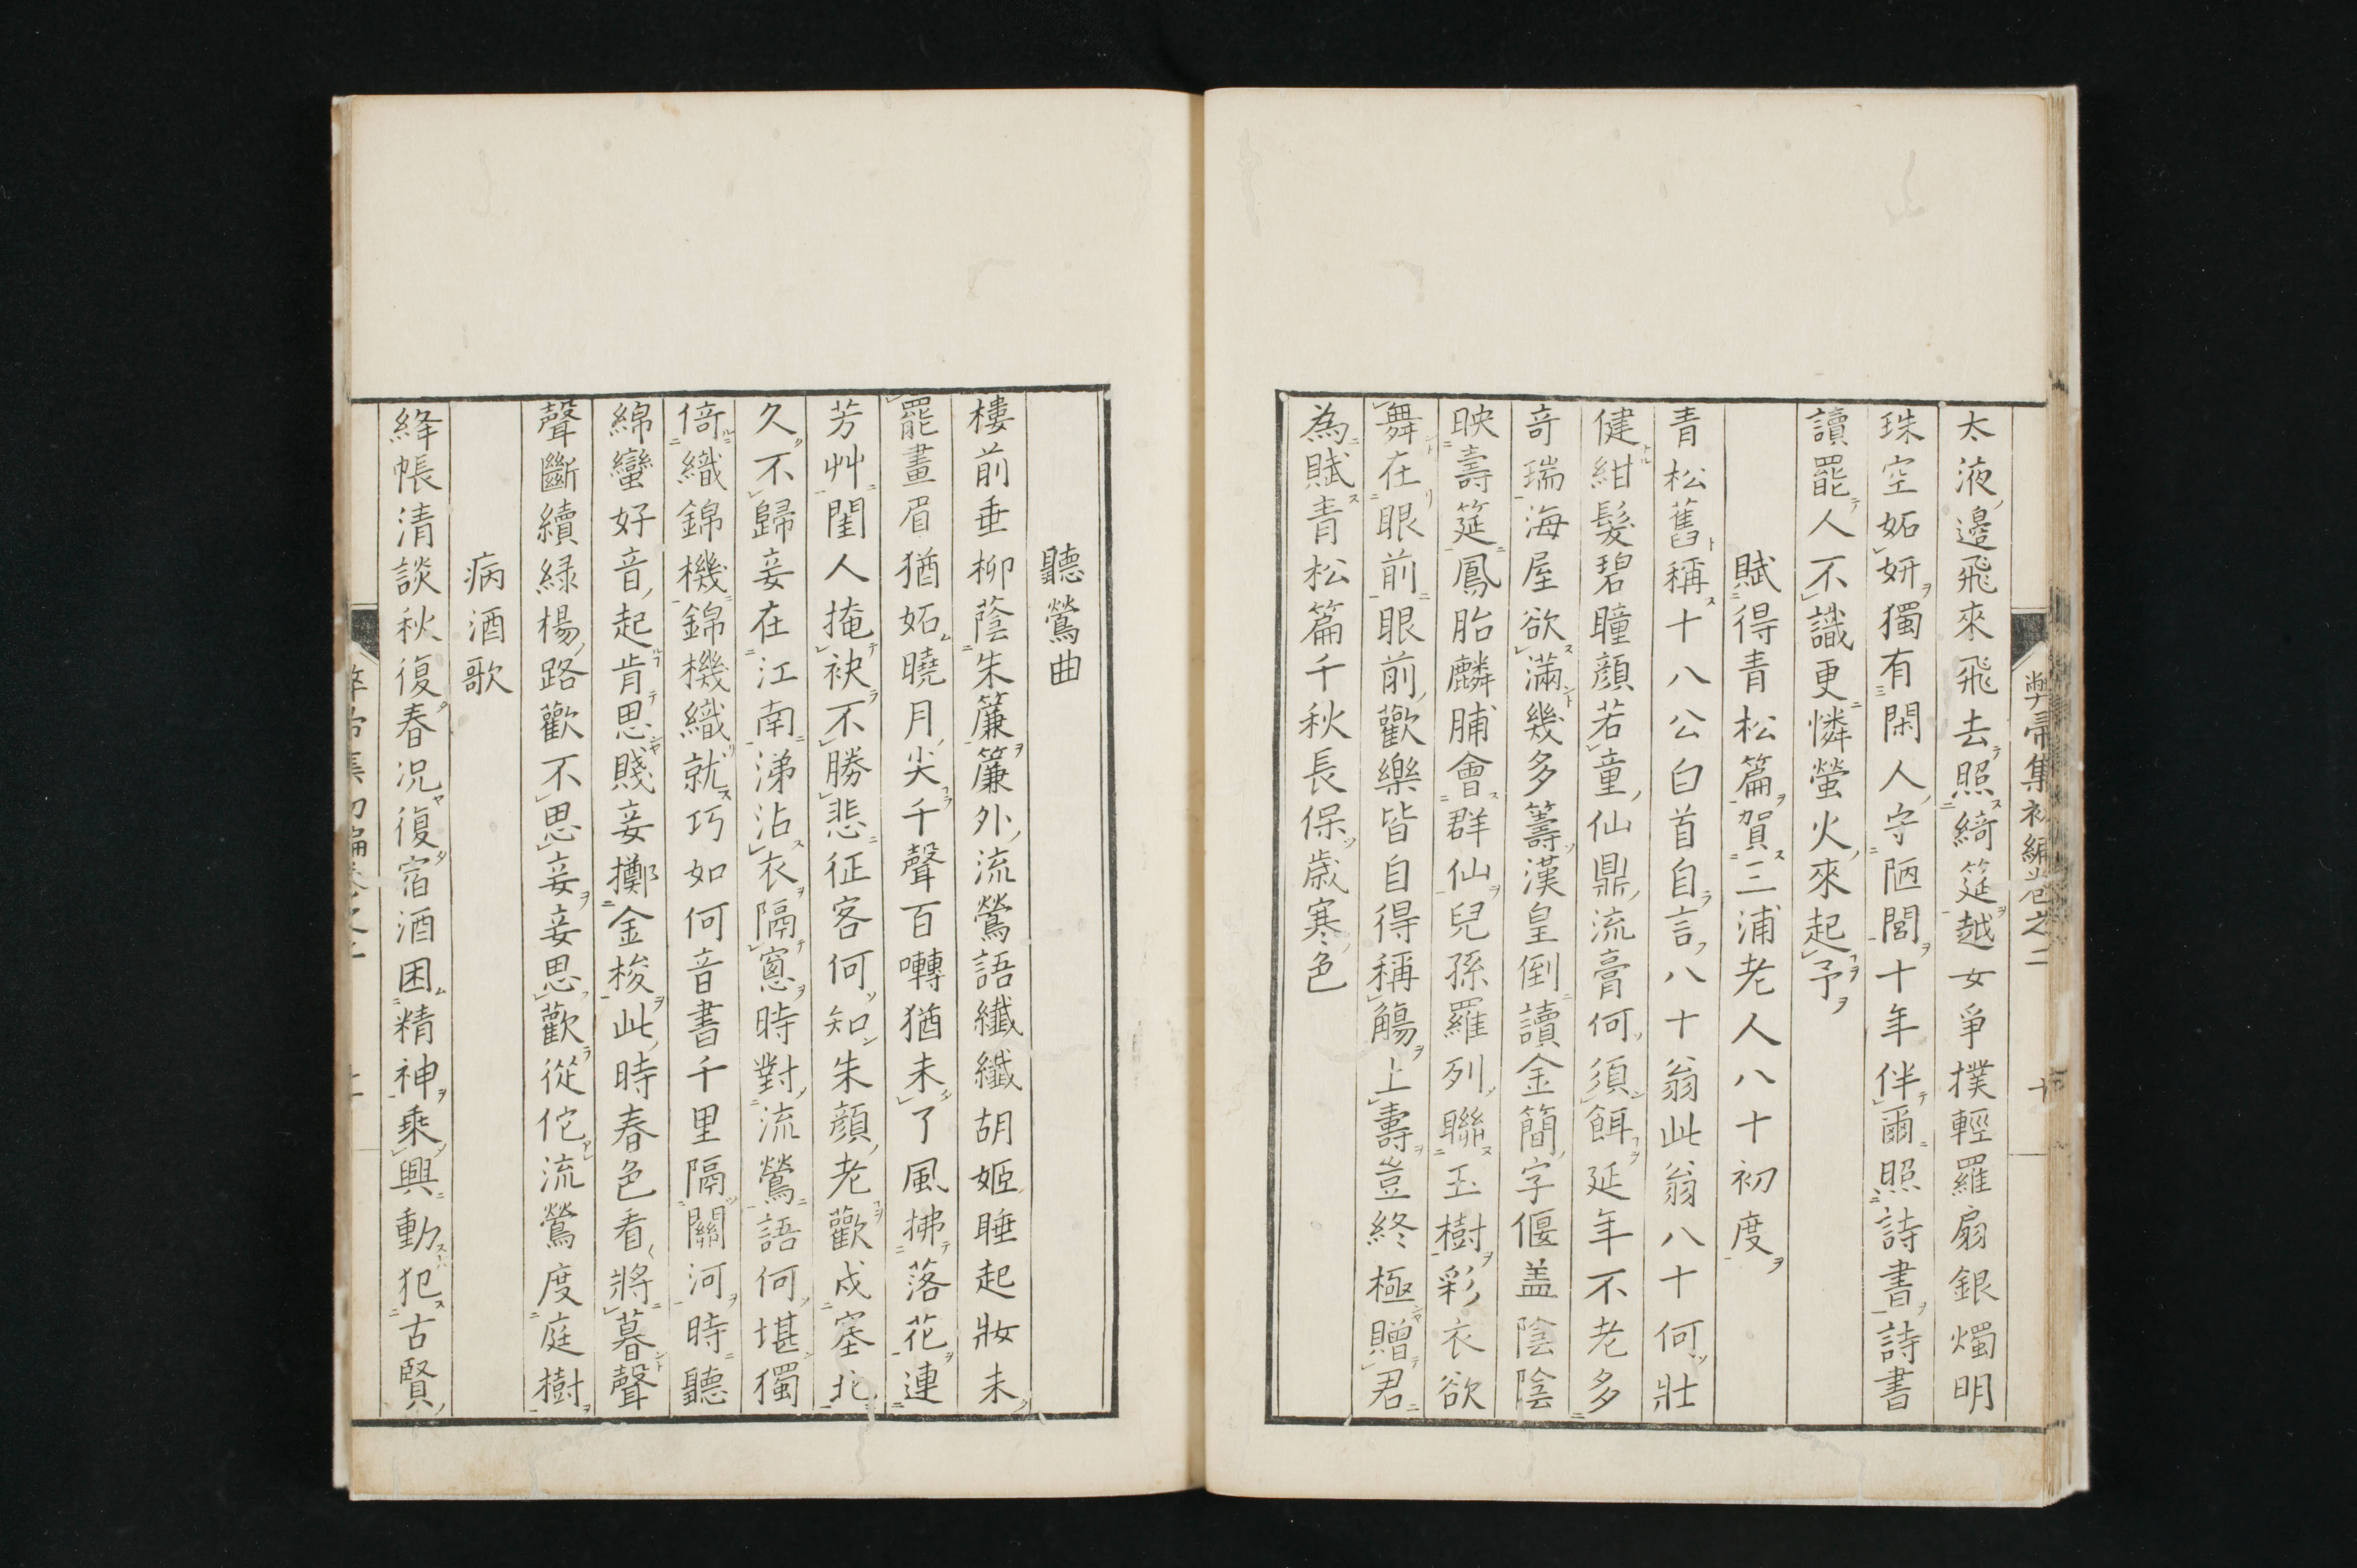 弊帚集初編卷之二
太液邊飛來飛去照綺筵越女爭撲輕羅扇銀燭明
珠空妬妍獨有閑人守陋閭十年伴爾照詩書詩書
讀罷人不識更憐螢火來起予
賦得青松篇賀三浦老人八十初度
青松舊稱十八公白首自言八十翁此翁八十何壯
健紺髮碧瞳顔若童仙鼎流膏何須餌延年不老多
奇瑞海屋欲滿幾多籌漢皇倒讀金簡字偃盖陰陰
映壽筵鳳胎麟脯會群仙兒孫羅列聯玉樹彩衣欲
舞在眼前眼前歡樂皆自得稱觴上壽豈終極贈君
為賦青松篇千秋長保歲寒色
聽鶯曲
樓前垂柳蔭朱簾簾外流鶯語纖纖胡姬睡起妝未
罷畫眉猶妬曉月尖千聲百囀猶未了風拂落花連
芳艸閨人掩袂不勝悲征客何知朱顔老歡戍塞北
久不歸妾在江南涕沾衣隔窻時對流鶯語何堪獨
倚織錦機錦機織就巧如何音書千里隔關河時聽
綿蠻好音起肯思賤妾擲金梭此時春色看將暮聲
聲斷續綠楊路歡不思妾妾思歡從佗流鶯度庭樹
病酒歌
絳帳清談秋復春況復宿酒困精神乘興動犯古賢